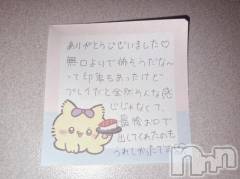 ありがとうございました♡
無口よりで怖そうだな〜
って印象もあったけど
プレイだと全然そんな感
じじゃなくて、
最後お口で
出してくれたのも
うれしかったです♡